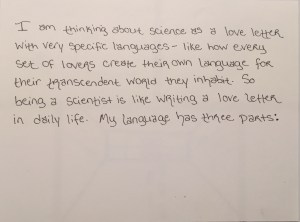 I am thinking about science as a love letter
with very specific languages - like how every
set of lovers create their own language for
their transcendent world they inhabit. So
being a scientist is like writing a love letter
in daily life. My language has three parts: